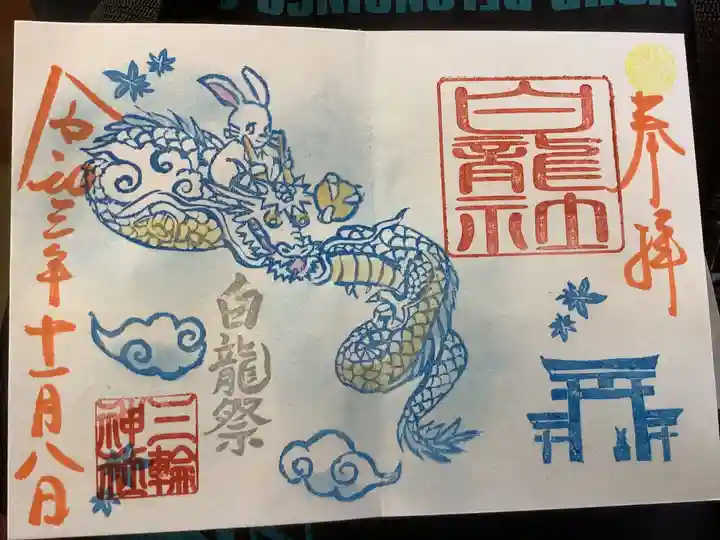 奉拝
白龍社
白龍祭
三輪
神社
令和三年十一月八日